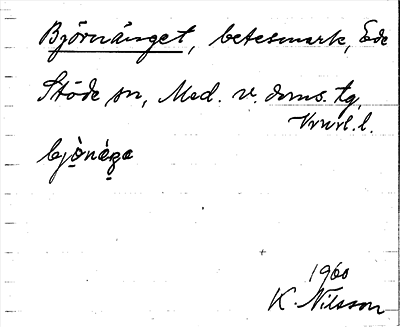 Björnänget, betesmark, Ede
Stöde sn, Med. v. doms. tg,
bjò̤nä́ga
1960
K. Nilsson